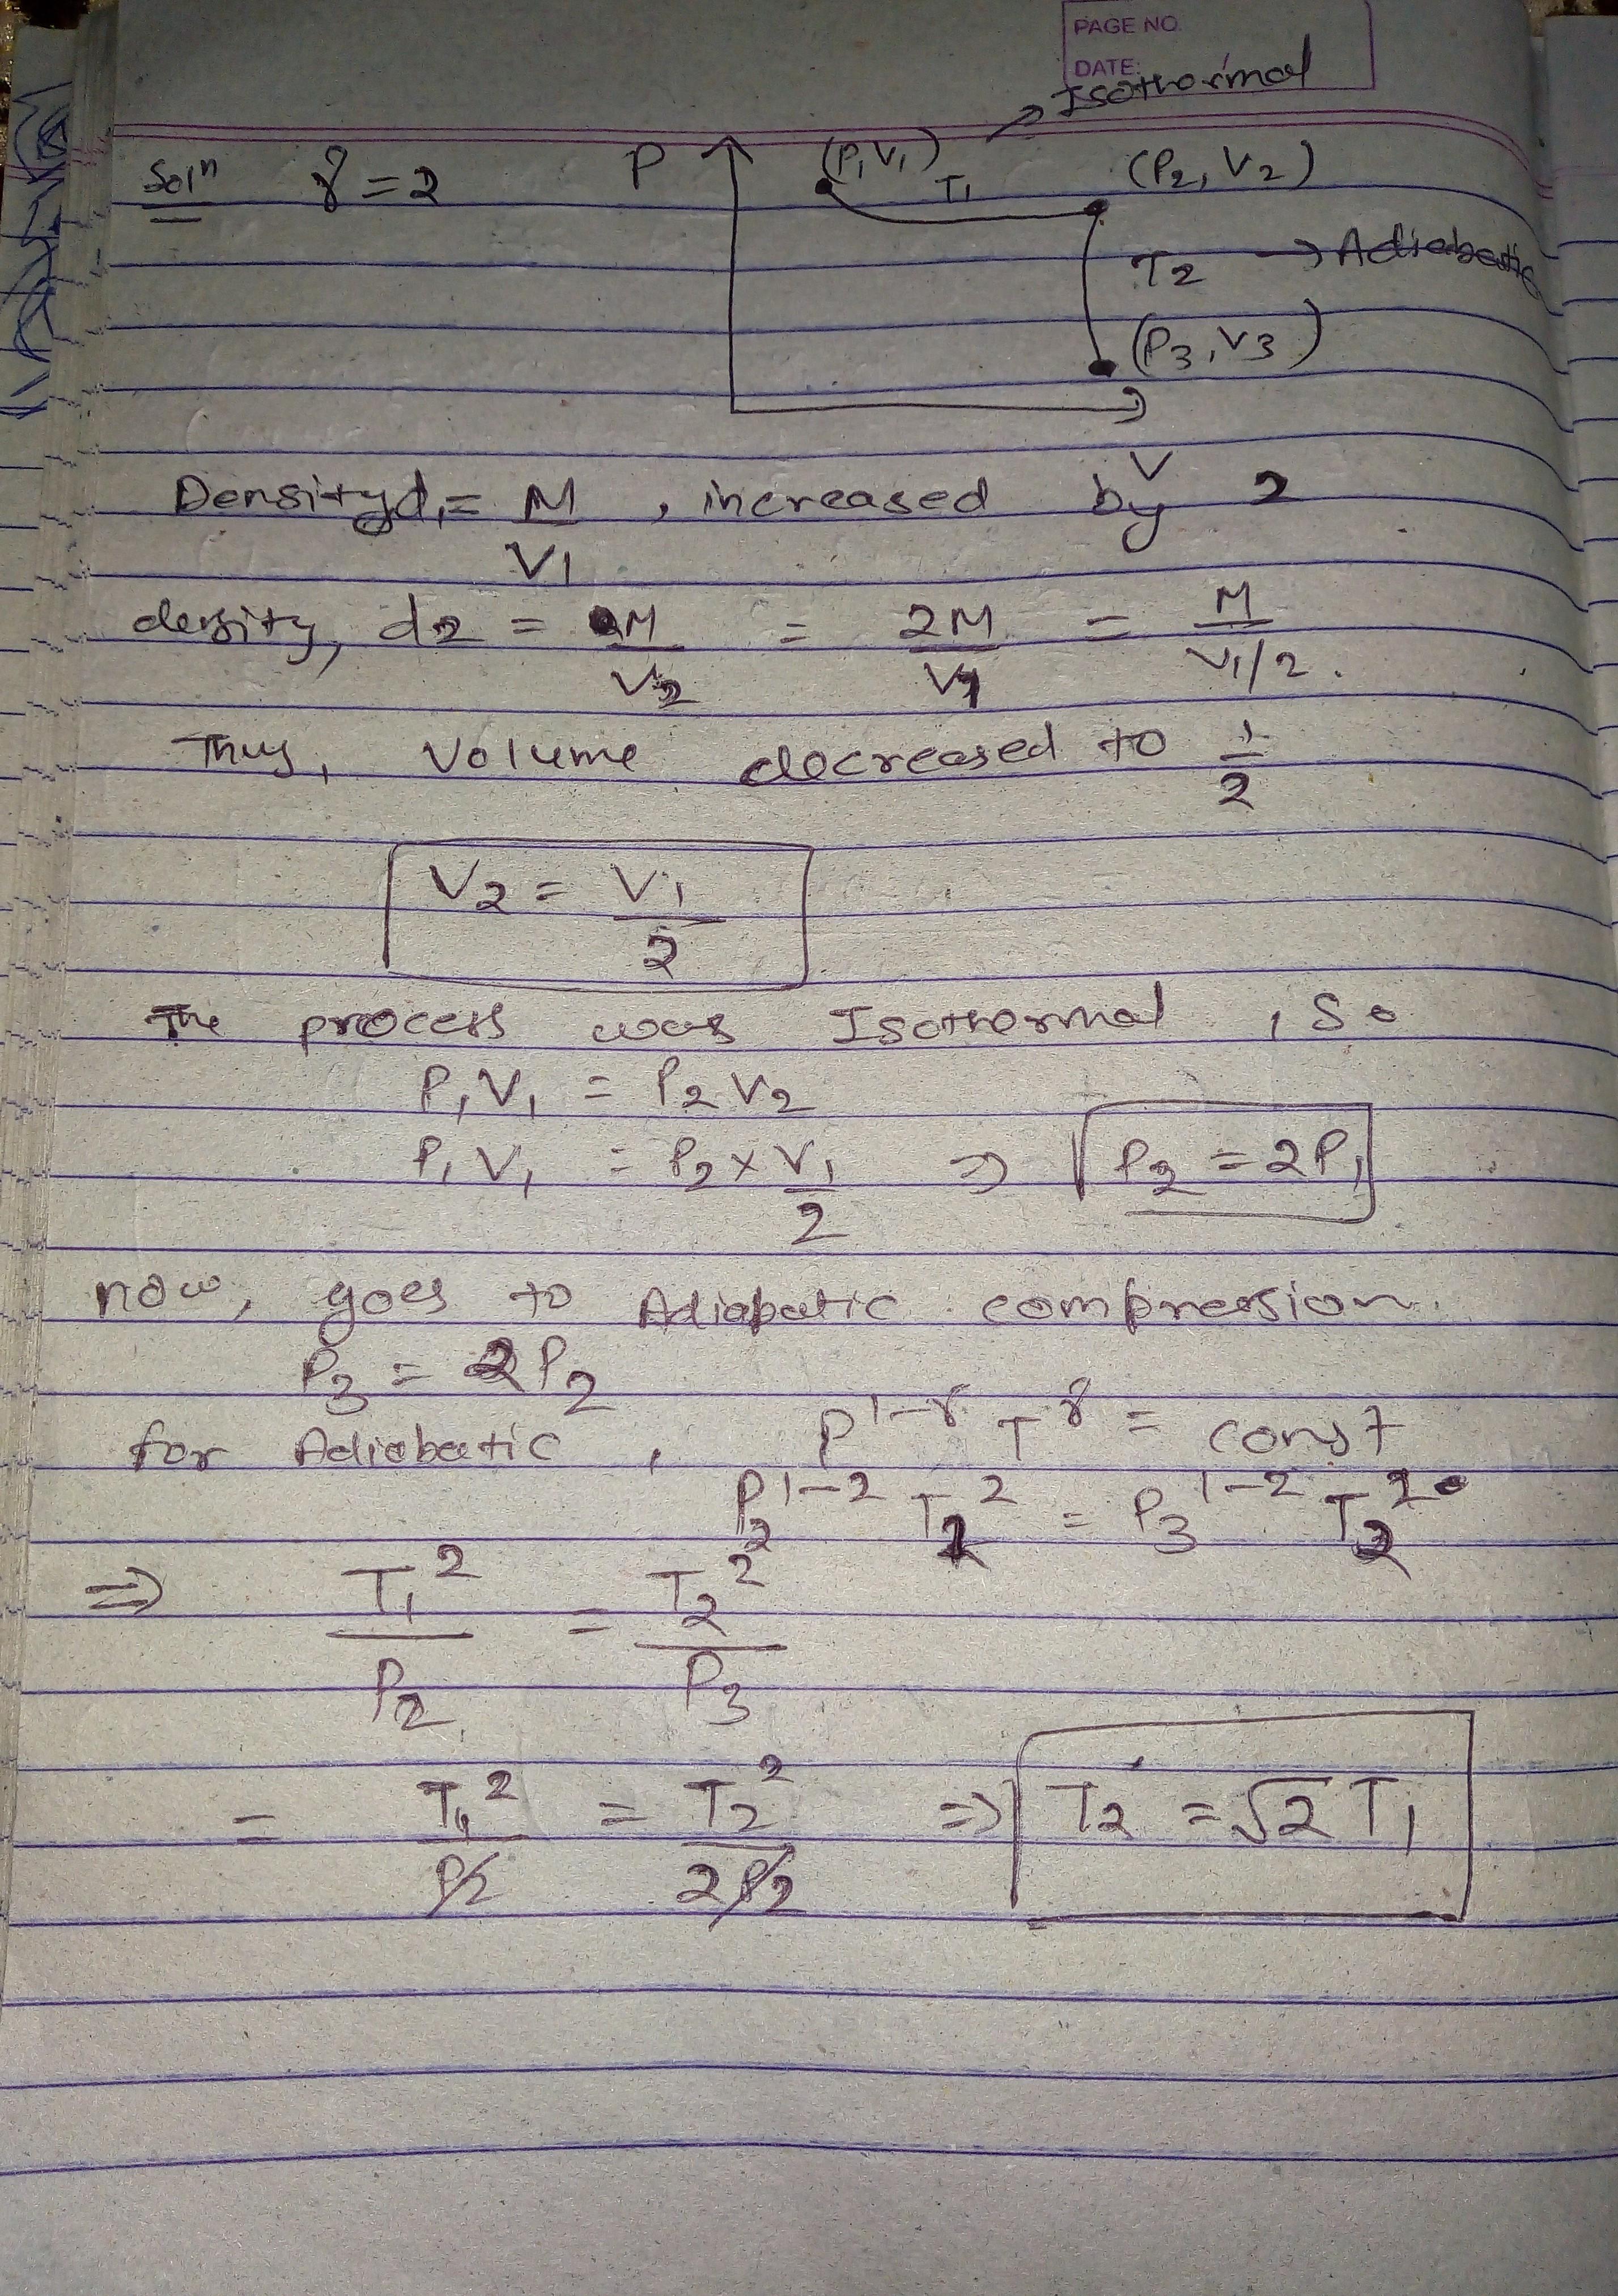 PAGE NO.
DATE:
Isothermal
Soln γ = 2 P (P1V1) T1 (P2, V2)
T2 → Adiabatic
(P3, V3)
V
Density, d1 = M/V1 , increased by 2
density, d2 = 2M/V2 = 2M/V1 = M/V1/2.
Thus, volume decreased to 1/2
V2 = V1/2
The process was Isothermal, So
P1V1 = P2V2
P1V1 = P2 × V1/2 ⇒ P2 = 2P1
now, goes to Adiabatic compression.
P3 = 2P2
for Adiabatic, P^1-γ T^γ = const
P2^1-2 T1^2 = P3^1-2 T2^2
⇒ T1^2/P2 = T2^2/P3
= T1^2/P2 = T2^2/2P2 ⇒ T2 = √2 T1